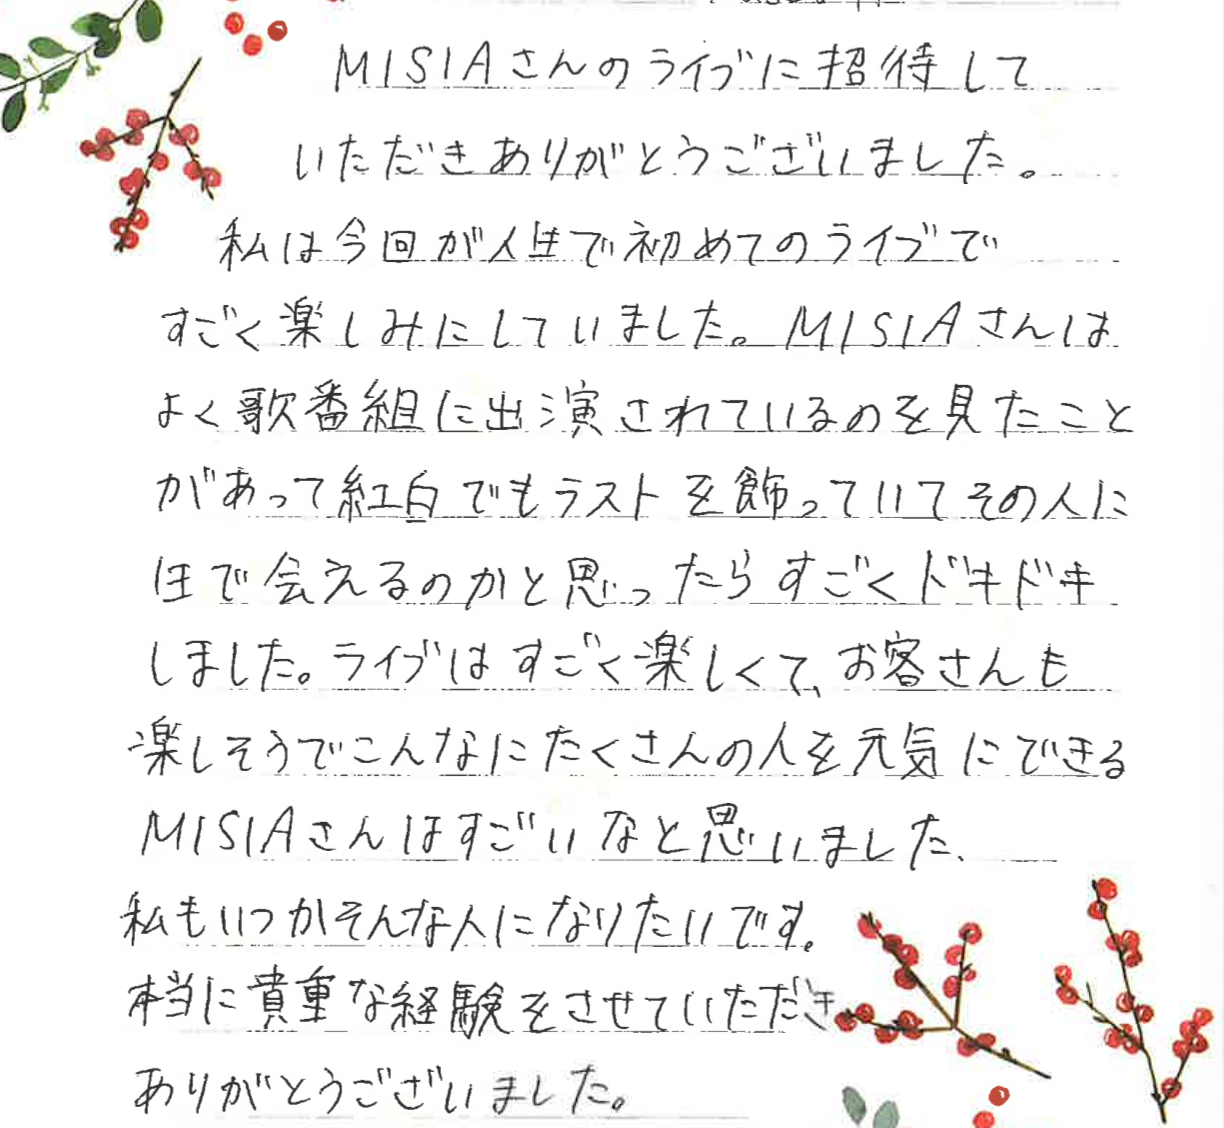 MISIAさんのライブに招待して
いただきありがとうございました。
私は今回が人生で初めてのライブで
すごく楽しみにしていました。MISIAさんは
よく歌番組に出演されているのを見たこと
があって紅白でもラストを飾っていてその人に
生で会えるのかと思ったらすごくドキドキ
しました。ライブはすごく楽しくて、お客さんも
楽しそうでこんなにたくさんの人を元気にできる
MISIAさんはすごいなと思いました、
私もいつかそんな人になりたいです。
本当に貴重な経験をさせていただき
ありがとうございました。